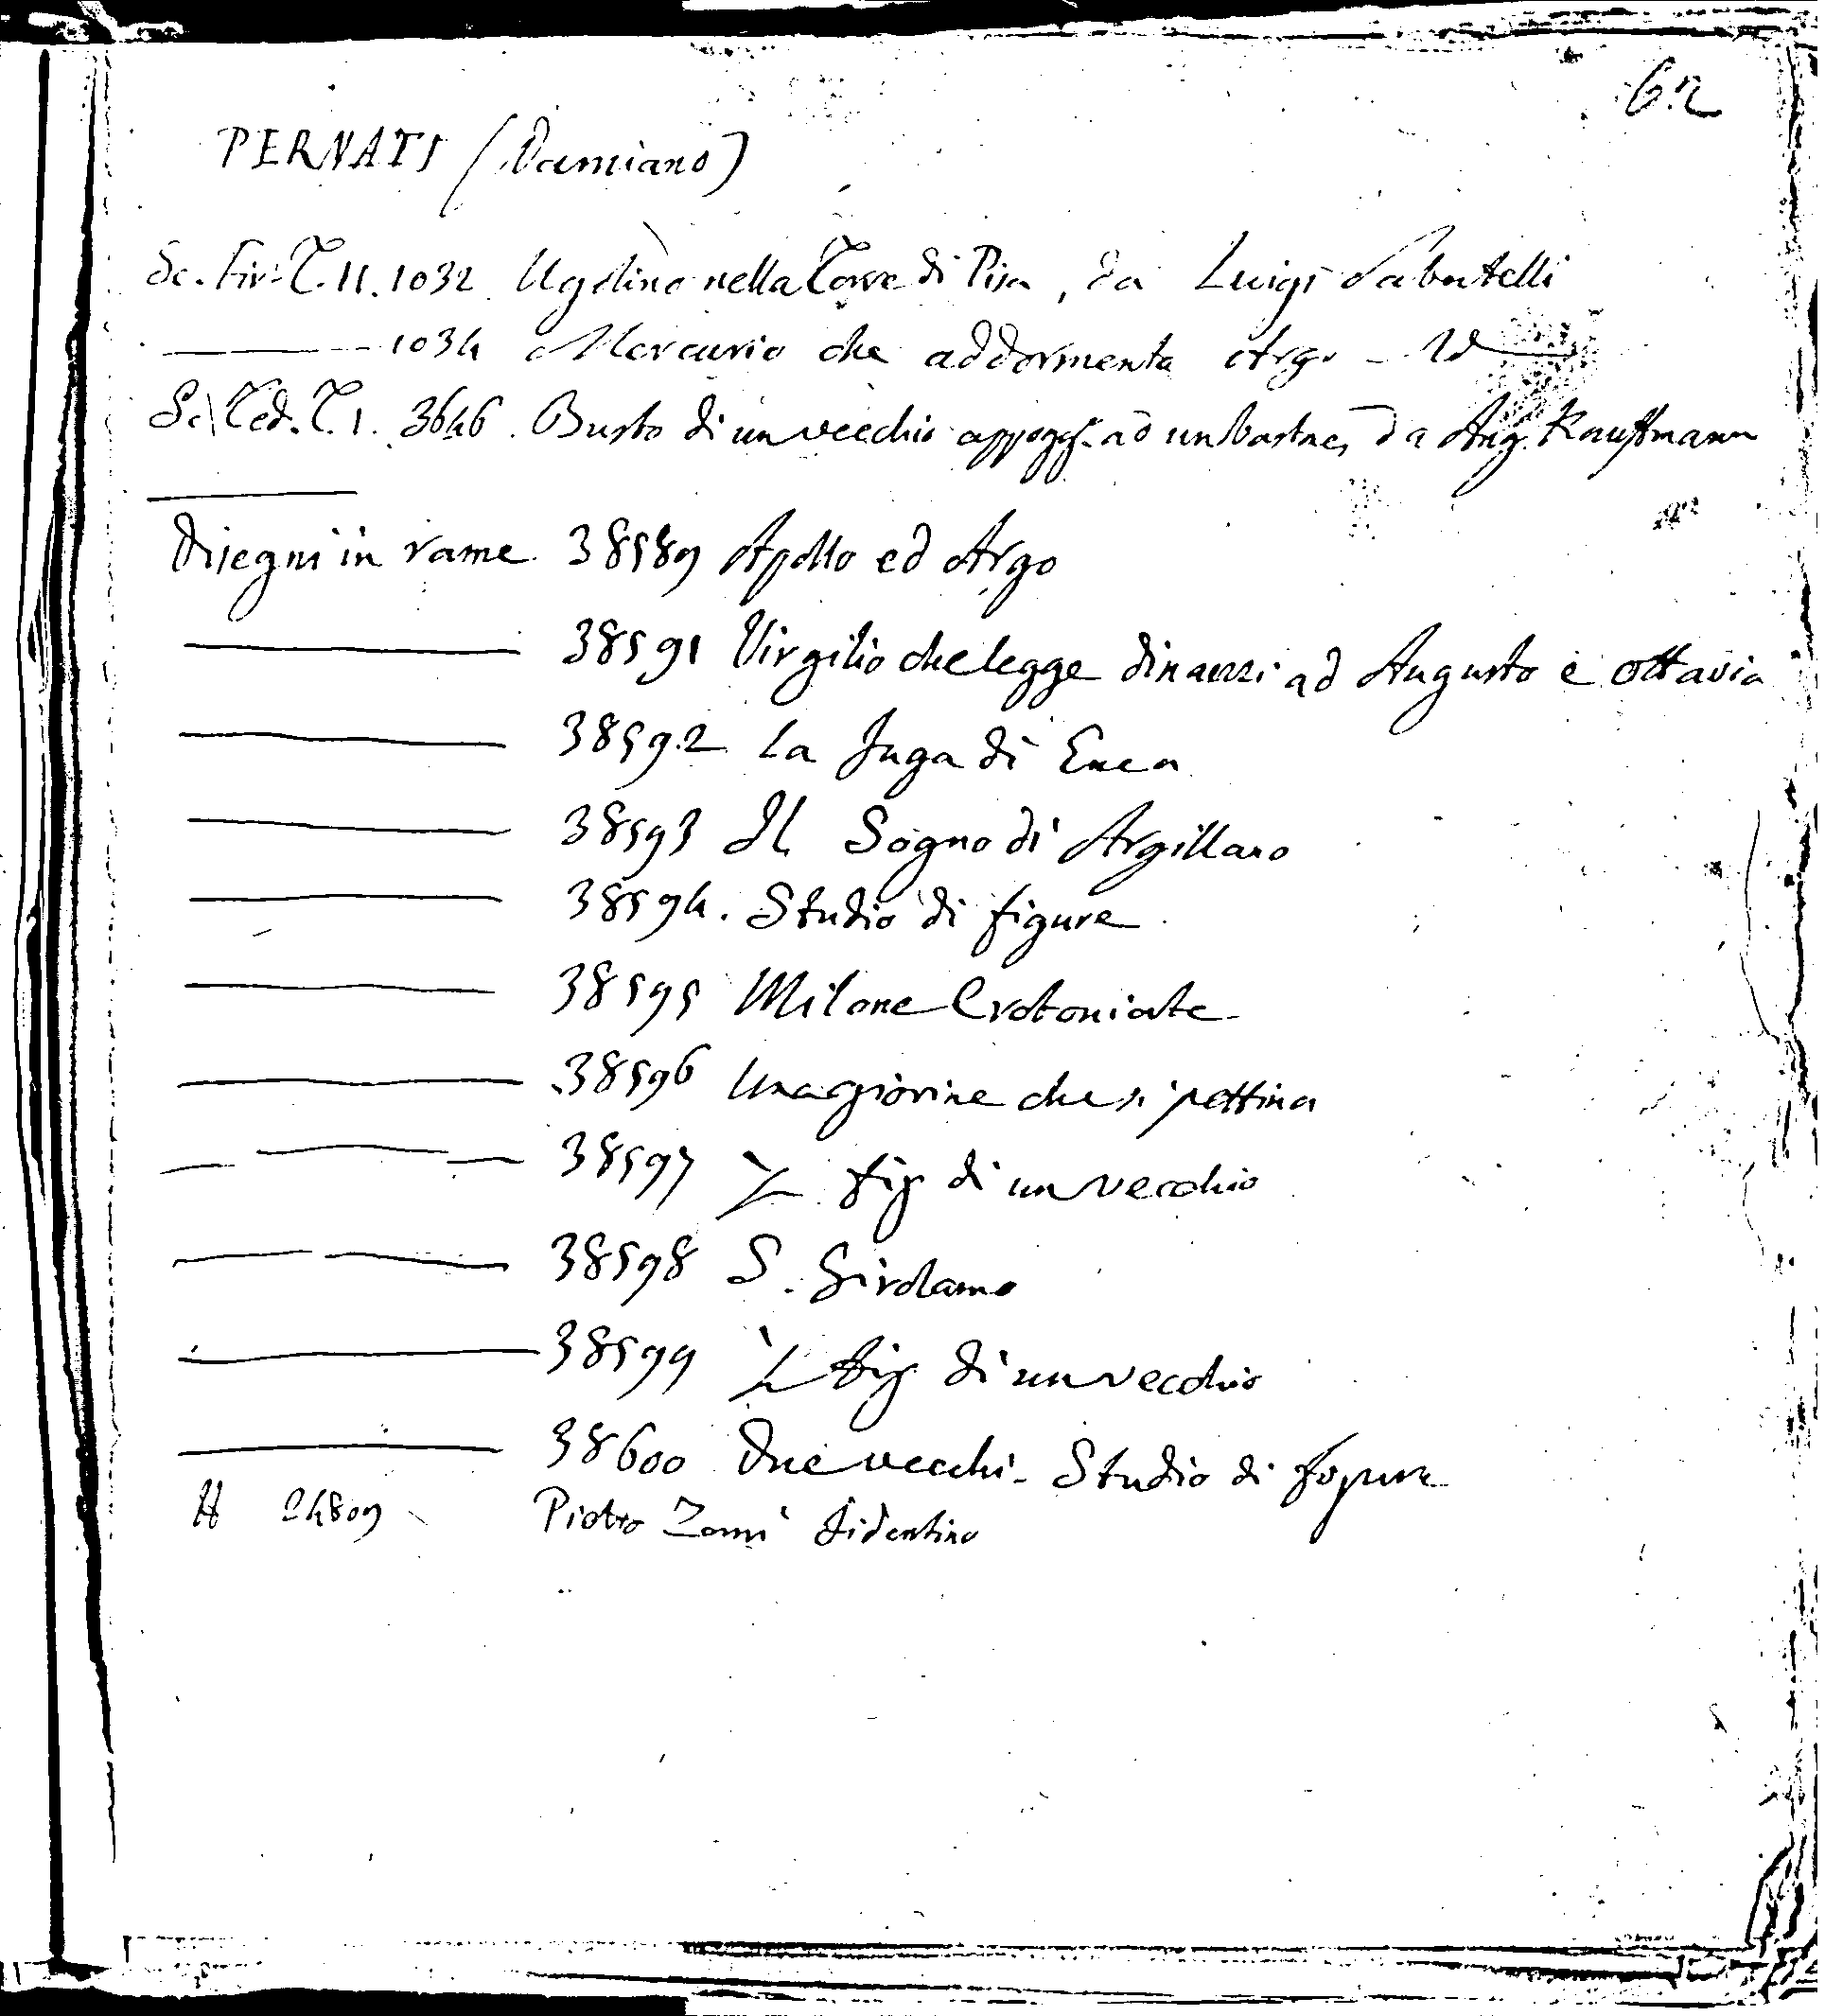 62
PERNATI (Damiano)
Sc. Fir. T. II. 1032 Ugolino nella Torre di Pisa, da Luigi Sabatelli
1034 Mercurio che addormenta Argo - Id
Sc. Ted. T. I. 3646. Busto di un vecchio appogg. ad un bastone, da Ang. Kauffmann
Disegni in rame 38589 Apollo ed Argo
38591 Virgilio che legge dinanzi ad Augusto e Ottavia
38592 La fuga di Enea
38593 Il Sogno di Argillano
38594. Studio di figure
38595 Milone Crotoniate
38596 Una giovine che si pettina
38597 ½ fig di un vecchio
38598 S. Girolamo
38599 ½ fig di un vecchio
38600 Due vecchi - Studio di figure
24809 Pietro Zani fidentino